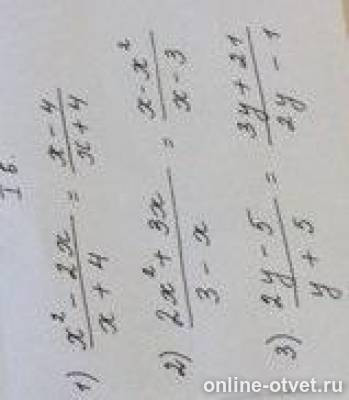 I в.
1) \frac{x^2 - 2x}{x + 4} = \frac{x - 4}{x + 4}
2) \frac{2x^2 + 3x}{3 - x} = \frac{x - x^2}{x - 3}
3) \frac{2y - 5}{y + 5} = \frac{3y + 21}{2y - 1}
online-otvet.ru